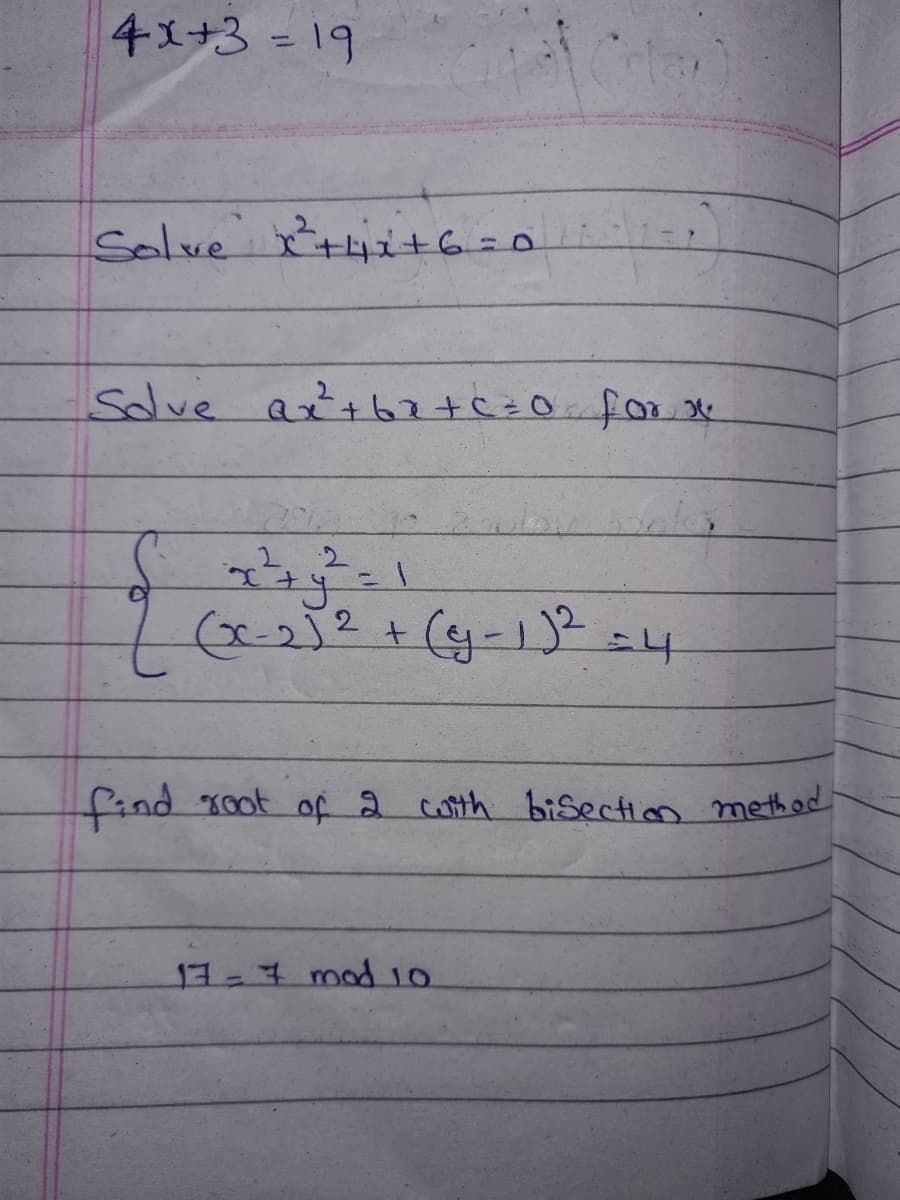 4x+3 = 19
Solve x²+4x+6=0
Solve ax²+bx+c=0 for x
x²+y²=1
(x-2)² + (y-1)² =4
find root of 2 with bisection method
17=7 mod 10